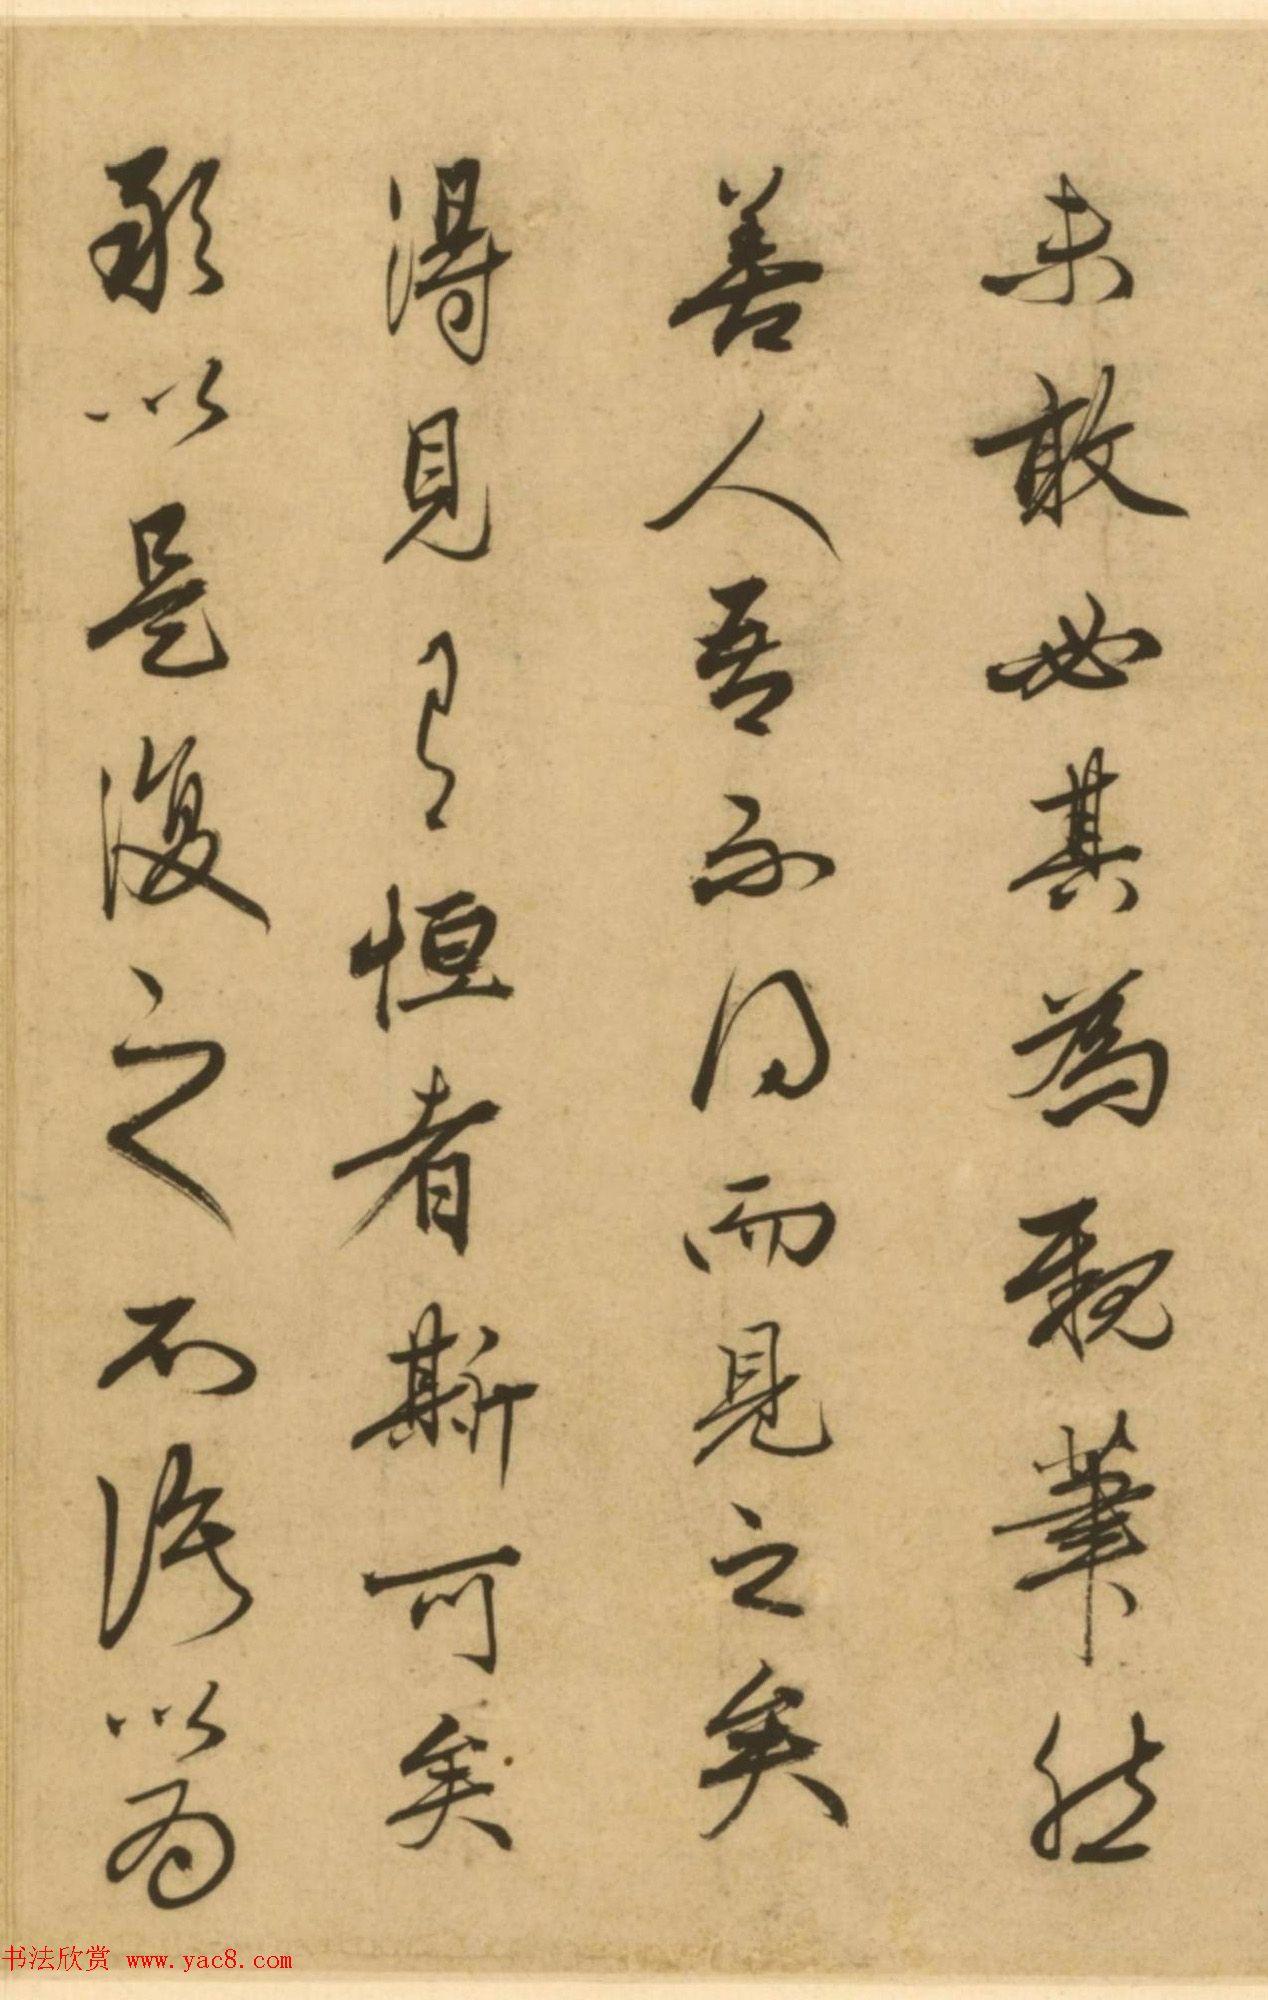 未敢必其為親筆然
善人吾不得而見之矣
得見有恒者斯可矣
敢以是復之不識以為
书法欣赏 www.yac8.com